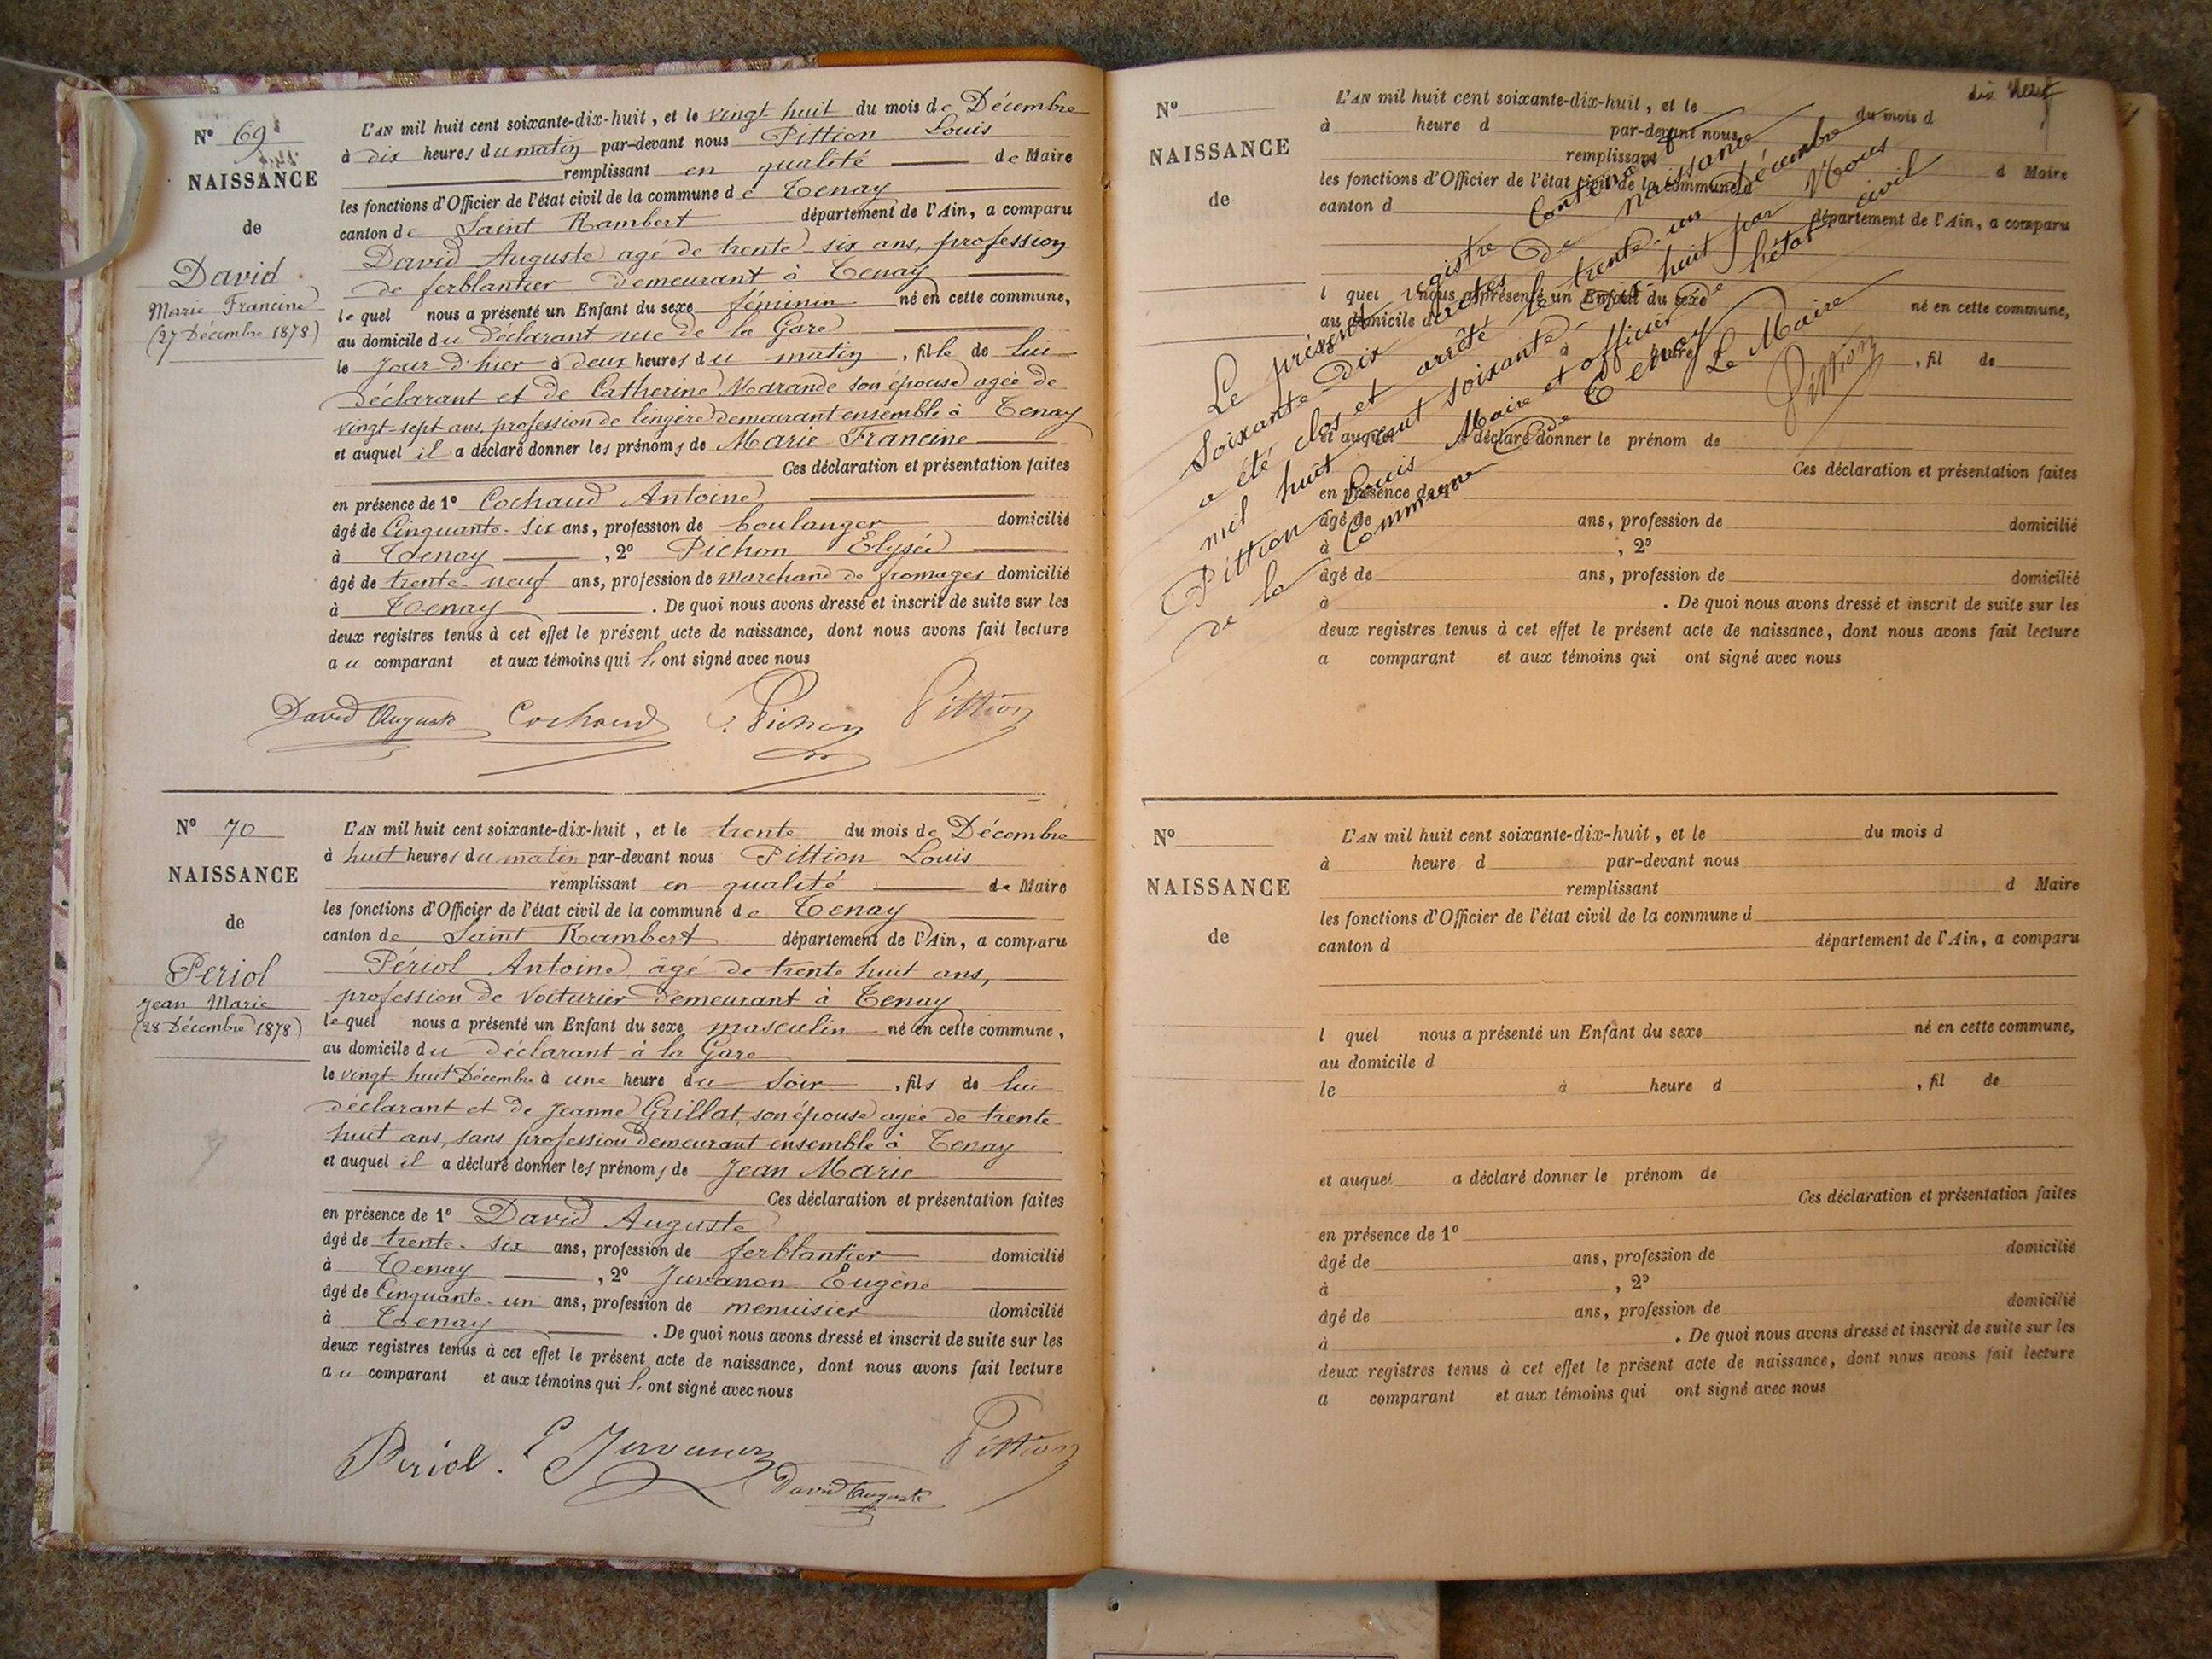 Nº 69
NAISSANCE
de
David
Marie Francine
(27 Décembre 1878)
L'AN mil huit cent soixante-dix-huit, et le vingt huit du mois de Décembre
à dix heures du matin par-devant nous Pittion Louis
remplissant en qualité de Maire
les fonctions d'Officier de l'état civil de la commune de Tenay
canton de Saint Rambert département de l'Ain, a comparu
David Auguste agé de trente six ans, profession
de ferblantier demeurant à Tenay
le quel nous a présenté un Enfant du sexe féminin né en cette commune,
au domicile du déclarant rue de la Gare
le jour d'hier à deux heures du matin, fille de lui
déclarant et de Catherine Marande son épouse agée de
vingt-sept ans, profession de lingère demeurant ensemble à Tenay
et auquel il a déclaré donner les prénoms de Marie Francine
Ces déclaration et présentation faites
en présence de 1º Cochaud Antoine
âgé de Cinquante-six ans, profession de boulanger domicilié
à Tenay, 2º Pichon Elysée
âgé de trente-neuf ans, profession de Marchand de fromages domicilié
à Tenay. De quoi nous avons dressé et inscrit de suite sur les
deux registres tenus à cet effet le présent acte de naissance, dont nous avons fait lecture
au comparant et aux témoins qui l'ont signé avec nous
David Auguste Cochaud Pichon Pittion
Nº 70
NAISSANCE
de
Periol
Jean Marie
(28 Décembre 1878)
L'AN mil huit cent soixante-dix-huit, et le trente du mois de Décembre
à huit heures du matin par-devant nous Pittion Louis
remplissant en qualité de Maire
les fonctions d'Officier de l'état civil de la commune de Tenay
canton de Saint Rambert département de l'Ain, a comparu
Périol Antoine âgé de trente huit ans,
profession de Voiturier demeurant à Tenay
le quel nous a présenté un Enfant du sexe masculin né en cette commune,
au domicile du déclarant à la Gare
le vingt-huit Décembre à une heure du soir, fils de lui
déclarant et de Jeanne Grillat, son épouse agée de trente
huit ans, sans profession demeurant ensemble à Tenay
et auquel il a déclaré donner les prénoms de Jean Marie
Ces déclaration et présentation faites
en présence de 1º David Auguste
âgé de trente-six ans, profession de ferblantier domicilié
à Tenay, 2º Juvanon Eugène
âgé de Cinquante-un ans, profession de menuisier domicilié
à Tenay. De quoi nous avons dressé et inscrit de suite sur les
deux registres tenus à cet effet le présent acte de naissance, dont nous avons fait lecture
au comparant et aux témoins qui l'ont signé avec nous
Périol. E Juvanon Pittion
David Auguste
Nº
NAISSANCE
de
L'AN mil huit cent soixante-dix-huit, et le du mois d
à heure d par-devant nous
remplissant d Maire
les fonctions d'Officier de l'état civil de la commune d
canton d département de l'Ain, a comparu
l quel nous a présenté un Enfant du sexe né en cette commune,
au domicile d
à heure, fil de
et auquel a déclaré donner le prénom de
Ces déclaration et présentation faites
en présence de 1º
âgé de ans, profession de domicilié
à, 2º
âgé de ans, profession de domicilié
à. De quoi nous avons dressé et inscrit de suite sur les
deux registres tenus à cet effet le présent acte de naissance, dont nous avons fait lecture
a comparant et aux témoins qui ont signé avec nous
Le présent registre contenant
Soixante Dix actes de naissance
a été clos et arrêté le trente-un Décembre
mil huit cent soixante-dix-huit par Nous
Pittion Louis Maire et officier de l'état civil
de la Commune de Tenay
Le Maire
Pittion
Nº
NAISSANCE
de
L'AN mil huit cent soixante-dix-huit, et le du mois d
à heure d par-devant nous
remplissant d Maire
les fonctions d'Officier de l'état civil de la commune d
canton d département de l'Ain, a comparu
l quel nous a présenté un Enfant du sexe né en cette commune,
au domicile d
le à heure d, fil de
et auquel a déclaré donner le prénom de
Ces déclaration et présentation faites
en présence de 1º
âgé de ans, profession de domicilié
à, 2º
âgé de ans, profession de domicilié
à. De quoi nous avons dressé et inscrit de suite sur les
deux registres tenus à cet effet le présent acte de naissance, dont nous avons fait lecture
a comparant et aux témoins qui ont signé avec nous